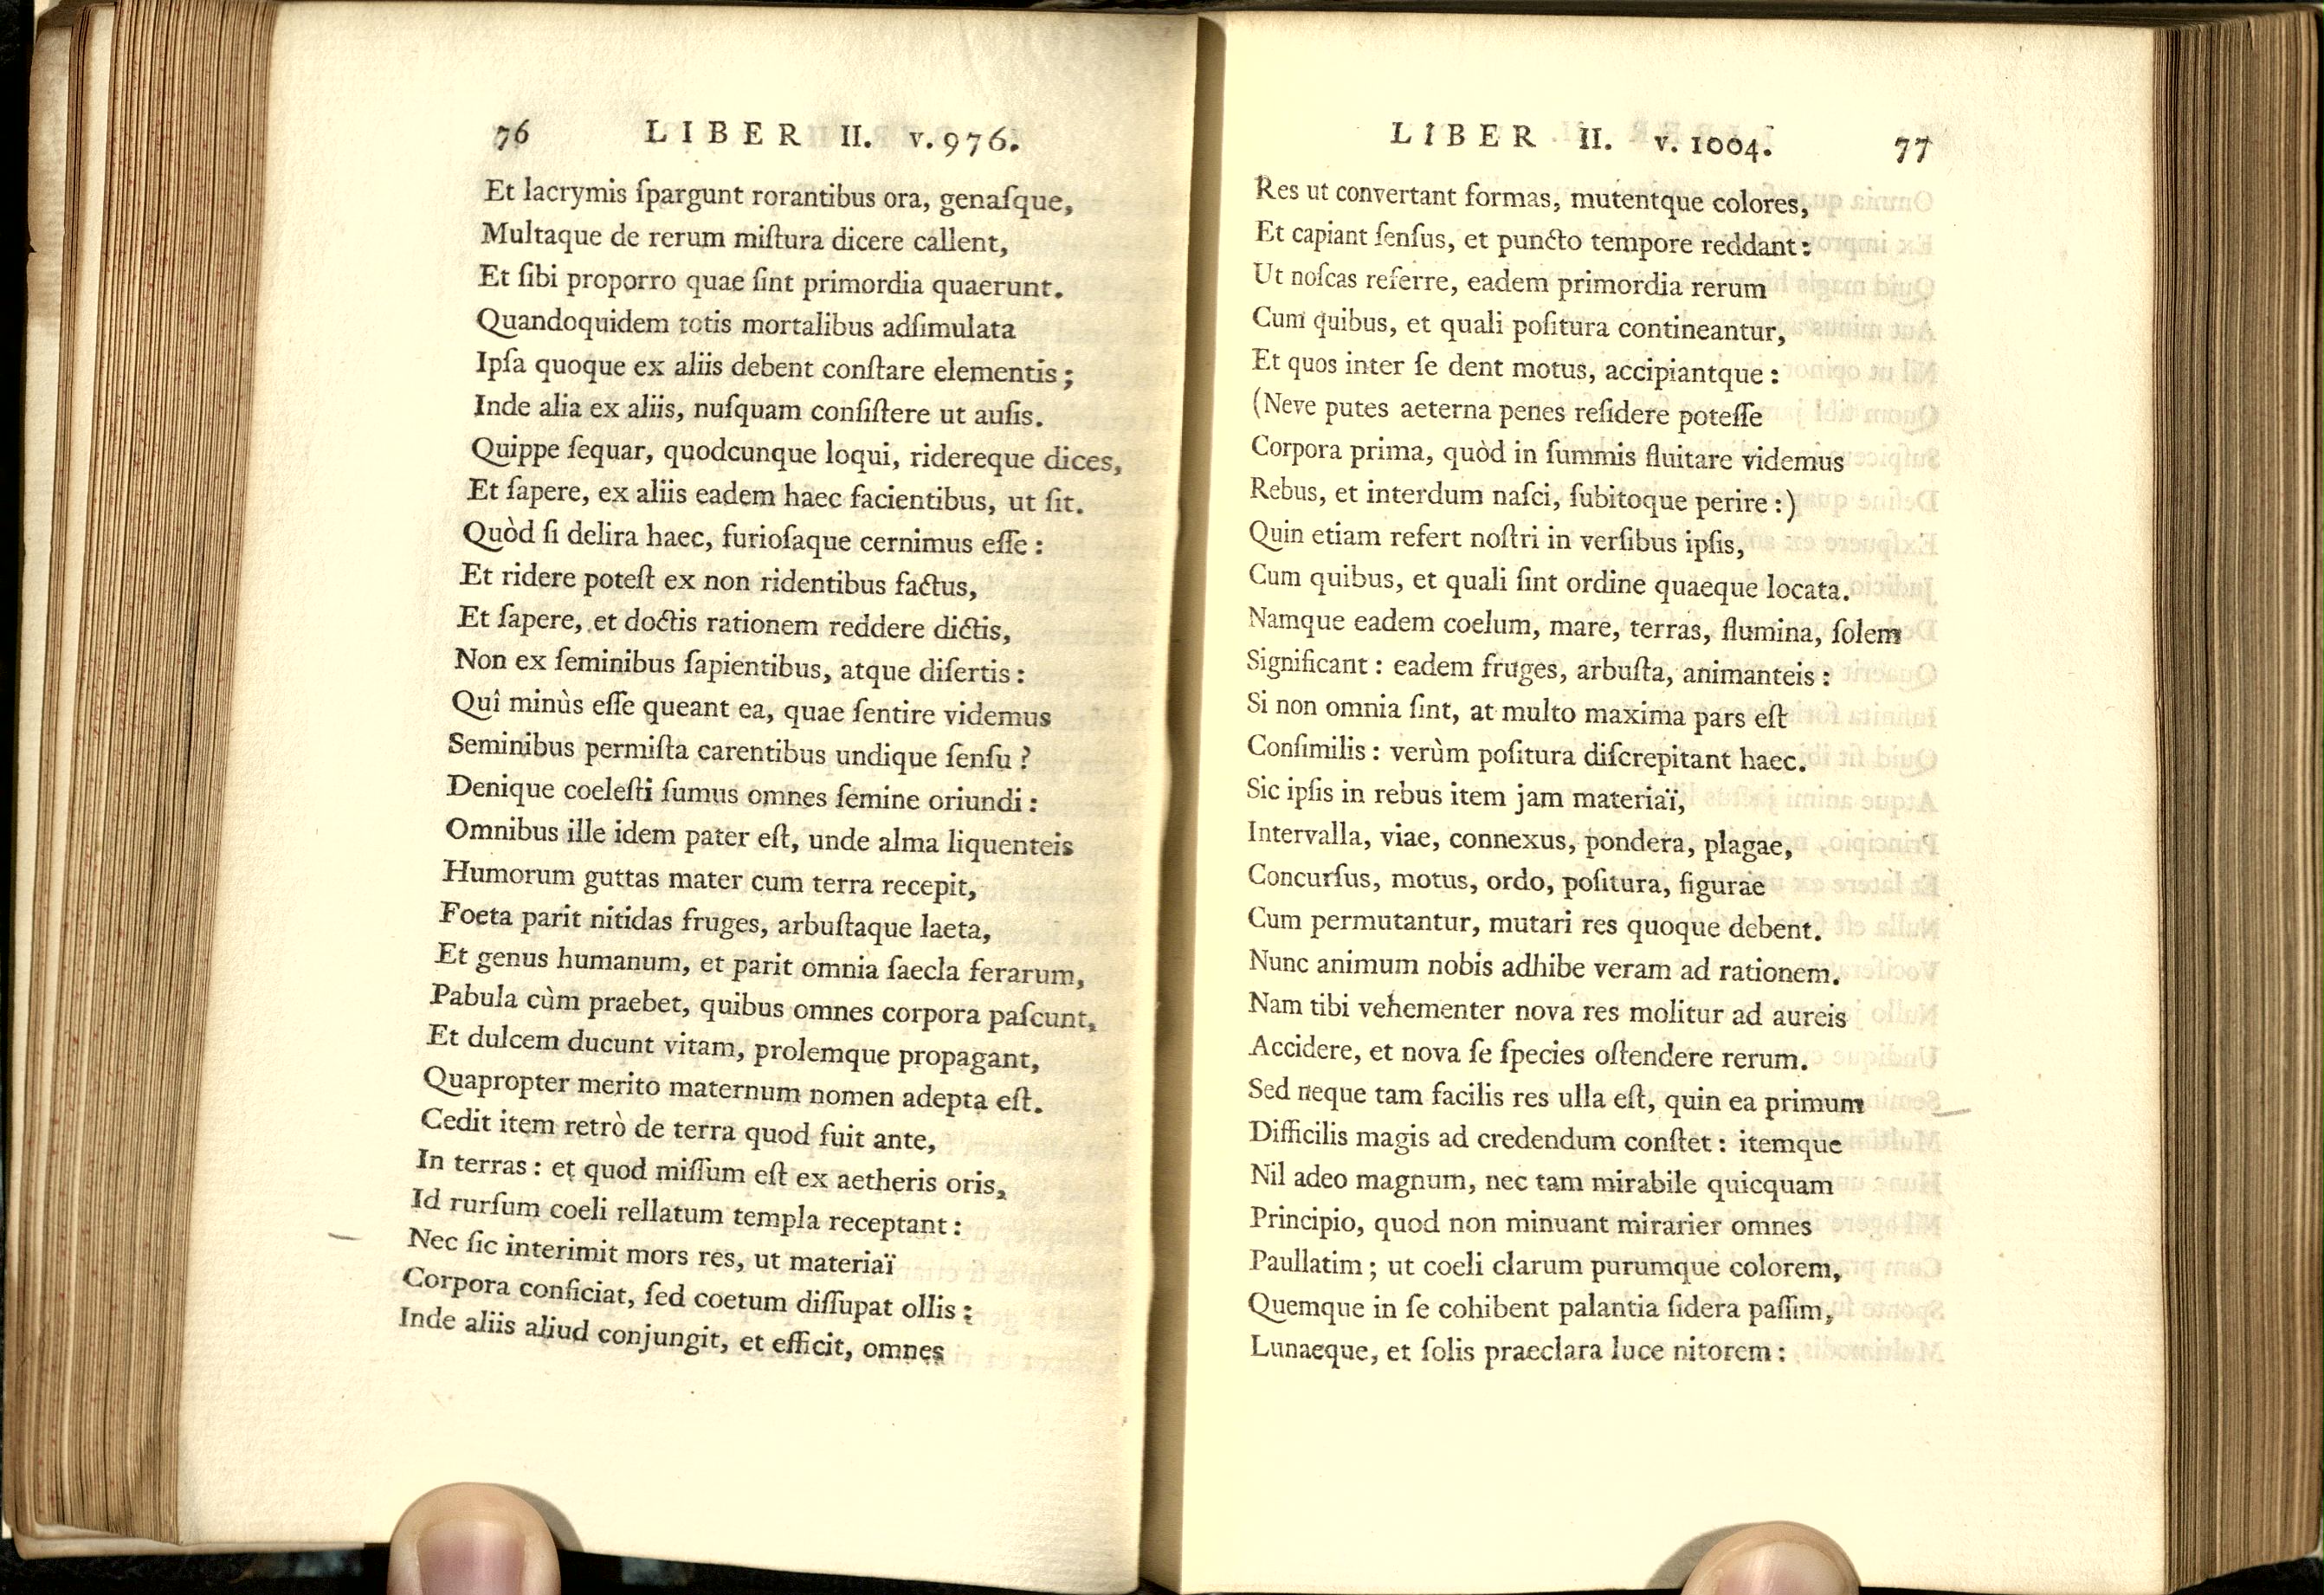 76 LIBER II. v. 976.
Et lacrymis ſpargunt rorantibus ora, genaſque,
Multaque de rerum miſtura dicere callent,
Et ſibi proporro quae ſint primordia quaerunt.
Quandoquidem totis mortalibus adſimulata
Ipſa quoque ex aliis debent conſtare elementis;
Inde alia ex aliis, nuſquam conſiſtere ut auſis.
Quippe ſequar, quodcunque loqui, ridereque dices,
Et ſapere, ex aliis eadem haec facientibus, ut ſit.
Quòd ſi delira haec, furioſaque cernimus eſſe:
Et ridere poteſt ex non ridentibus factus,
Et ſapere, et doctis rationem reddere dictis,
Non ex ſeminibus ſapientibus, atque diſertis:
Quî minùs eſſe queant ea, quae ſentire videmus
Seminibus permiſta carentibus undique ſenſu?
Denique coeleſti ſumus omnes ſemine oriundi:
Omnibus ille idem pater eſt, unde alma liquenteis
Humorum guttas mater cum terra recepit,
Foeta parit nitidas fruges, arbuſtaque laeta,
Et genus humanum, et parit omnia ſaecla ferarum,
Pabula cùm praebet, quibus omnes corpora paſcunt,
Et dulcem ducunt vitam, prolemque propagant,
Quapropter merito maternum nomen adepta eſt.
Cedit item retrò de terra quod fuit ante,
In terras: et quod miſſum eſt ex aetheris oris,
Id rurſum coeli rellatum templa receptant:
Nec ſic interimit mors res, ut materiaï
Corpora conficiat, ſed coetum diſſupat ollis:
Inde aliis aliud conjungit, et efficit, omnes
LIBER II. v. 1004. 77
Res ut convertant formas, mutentque colores,
Et capiant ſenſus, et puncto tempore reddant:
Ut noſcas referre, eadem primordia rerum
Cum quibus, et quali poſitura contineantur,
Et quos inter ſe dent motus, accipiantque:
(Neve putes aeterna penes reſidere poteſſe
Corpora prima, quòd in ſummis fluitare videmus
Rebus, et interdum naſci, ſubitoque perire:)
Quin etiam refert noſtri in verſibus ipſis,
Cum quibus, et quali ſint ordine quaeque locata.
Namque eadem coelum, mare, terras, flumina, ſolem
Significant: eadem fruges, arbuſta, animanteis:
Si non omnia ſint, at multo maxima pars eſt
Conſimilis: verùm poſitura diſcrepitant haec.
Sic ipſis in rebus item jam materiaï,
Intervalla, viae, connexus, pondera, plagae,
Concurſus, motus, ordo, poſitura, figurae
Cum permutantur, mutari res quoque debent.
Nunc animum nobis adhibe veram ad rationem.
Nam tibi vehementer nova res molitur ad aureis
Accidere, et nova ſe ſpecies oſtendere rerum.
Sed neque tam facilis res ulla eſt, quin ea primum
Difficilis magis ad credendum conſtet: itemque
Nil adeo magnum, nec tam mirabile quicquam
Principio, quod non minuant mirarier omnes
Paullatim; ut coeli clarum purumque colorem,
Quemque in ſe cohibent palantia ſidera paſſim,
Lunaeque, et ſolis praeclara luce nitorem: